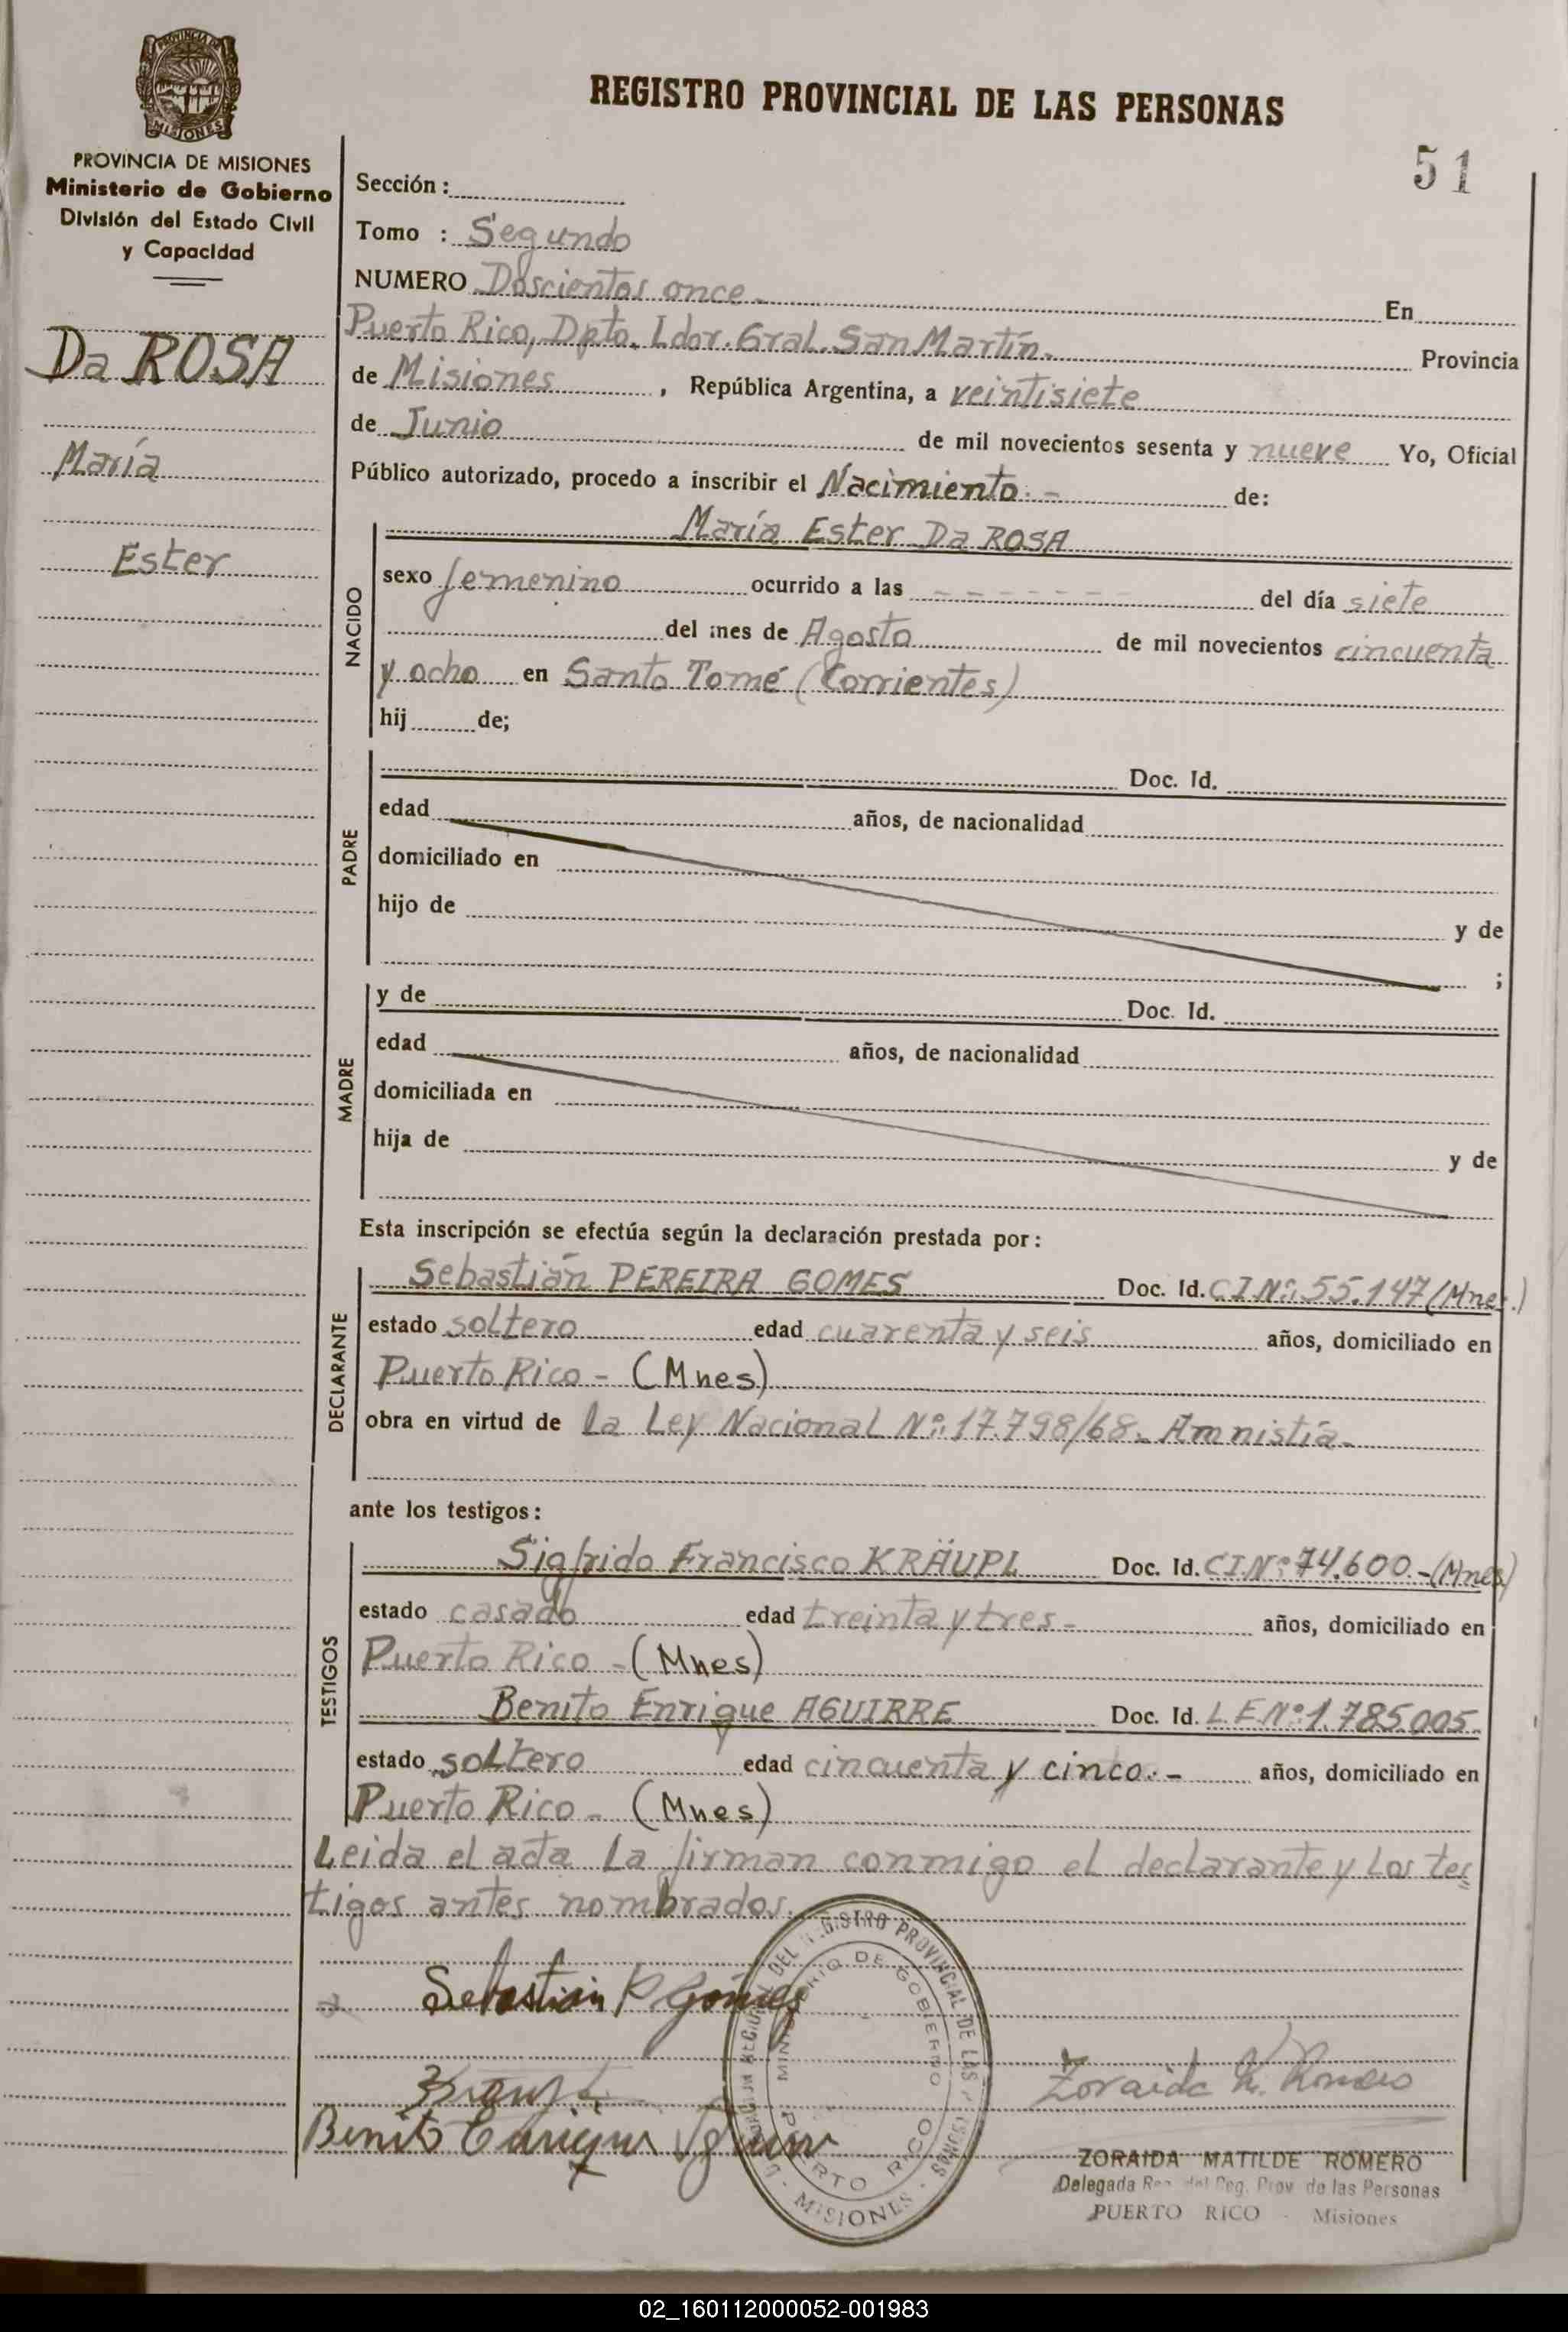 REGISTRO PROVINCIAL DE LAS PERSONAS
51
PROVINCIA DE MISIONES
PROVINCIA DE MISIONES
Ministerio de Gobierno
División del Estado Civil
y Capacidad
Da ROSA
María
Ester
Sección :
Tomo : Segundo
NUMERO Doscientos once.- En
Puerto Rico, Dpto. Ldor. Gral. San Martín. Provincia
de Misiones , República Argentina, a veintisiete
de Junio de mil novecientos sesenta y nueve Yo, Oficial
Público autorizado, procedo a inscribir el Nacimiento.- de:
NACIDO
María Ester Da ROSA
sexo femenino ocurrido a las - - - - - - - del día siete
del mes de Agosto de mil novecientos cincuenta
y ocho en Santo Tomé (Corrientes)
hij de;
PADRE
Doc. Id.
edad años, de nacionalidad
domiciliado en
hijo de y de
;
MADRE
y de Doc. Id.
edad años, de nacionalidad
domiciliada en
hija de y de
Esta inscripción se efectúa según la declaración prestada por:
DECLARANTE
Sebastián PEREIRA GOMES Doc. Id. C.I.Nº: 55.147 (Mnes.)
estado soltero edad cuarenta y seis años, domiciliado en
Puerto Rico - (Mnes)
obra en virtud de la Ley Nacional Nº: 17.798/68. Amnistía-
ante los testigos:
TESTIGOS
Sigfrido Francisco KRÄUPL Doc. Id. C.I.Nº: 74.600.-(Mnes)
estado casado edad treinta y tres- años, domiciliado en
Puerto Rico -(Mnes)
Benito Enrique AGUIRRE Doc. Id. L.E.Nº: 1.785.005.
estado soltero edad cincuenta y cinco.- años, domiciliado en
Puerto Rico - (Mnes)
Leida el acta la firman conmigo el declarante y los tes
tigos antes nombrados.
Sebastián P Gómes
Benito Enrique Aguirre
Zoraida M. Romero
DEL REGISTRO PROVINCIAL DE LAS PERSONAS
MINISTERIO DE GOBIERNO
PUERTO RICO
- MISIONES -
ZORAIDA MATILDE ROMERO
Delegada Reg. del Reg. Prov. de las Personas
PUERTO RICO - Misiones
02_160112000052-001983